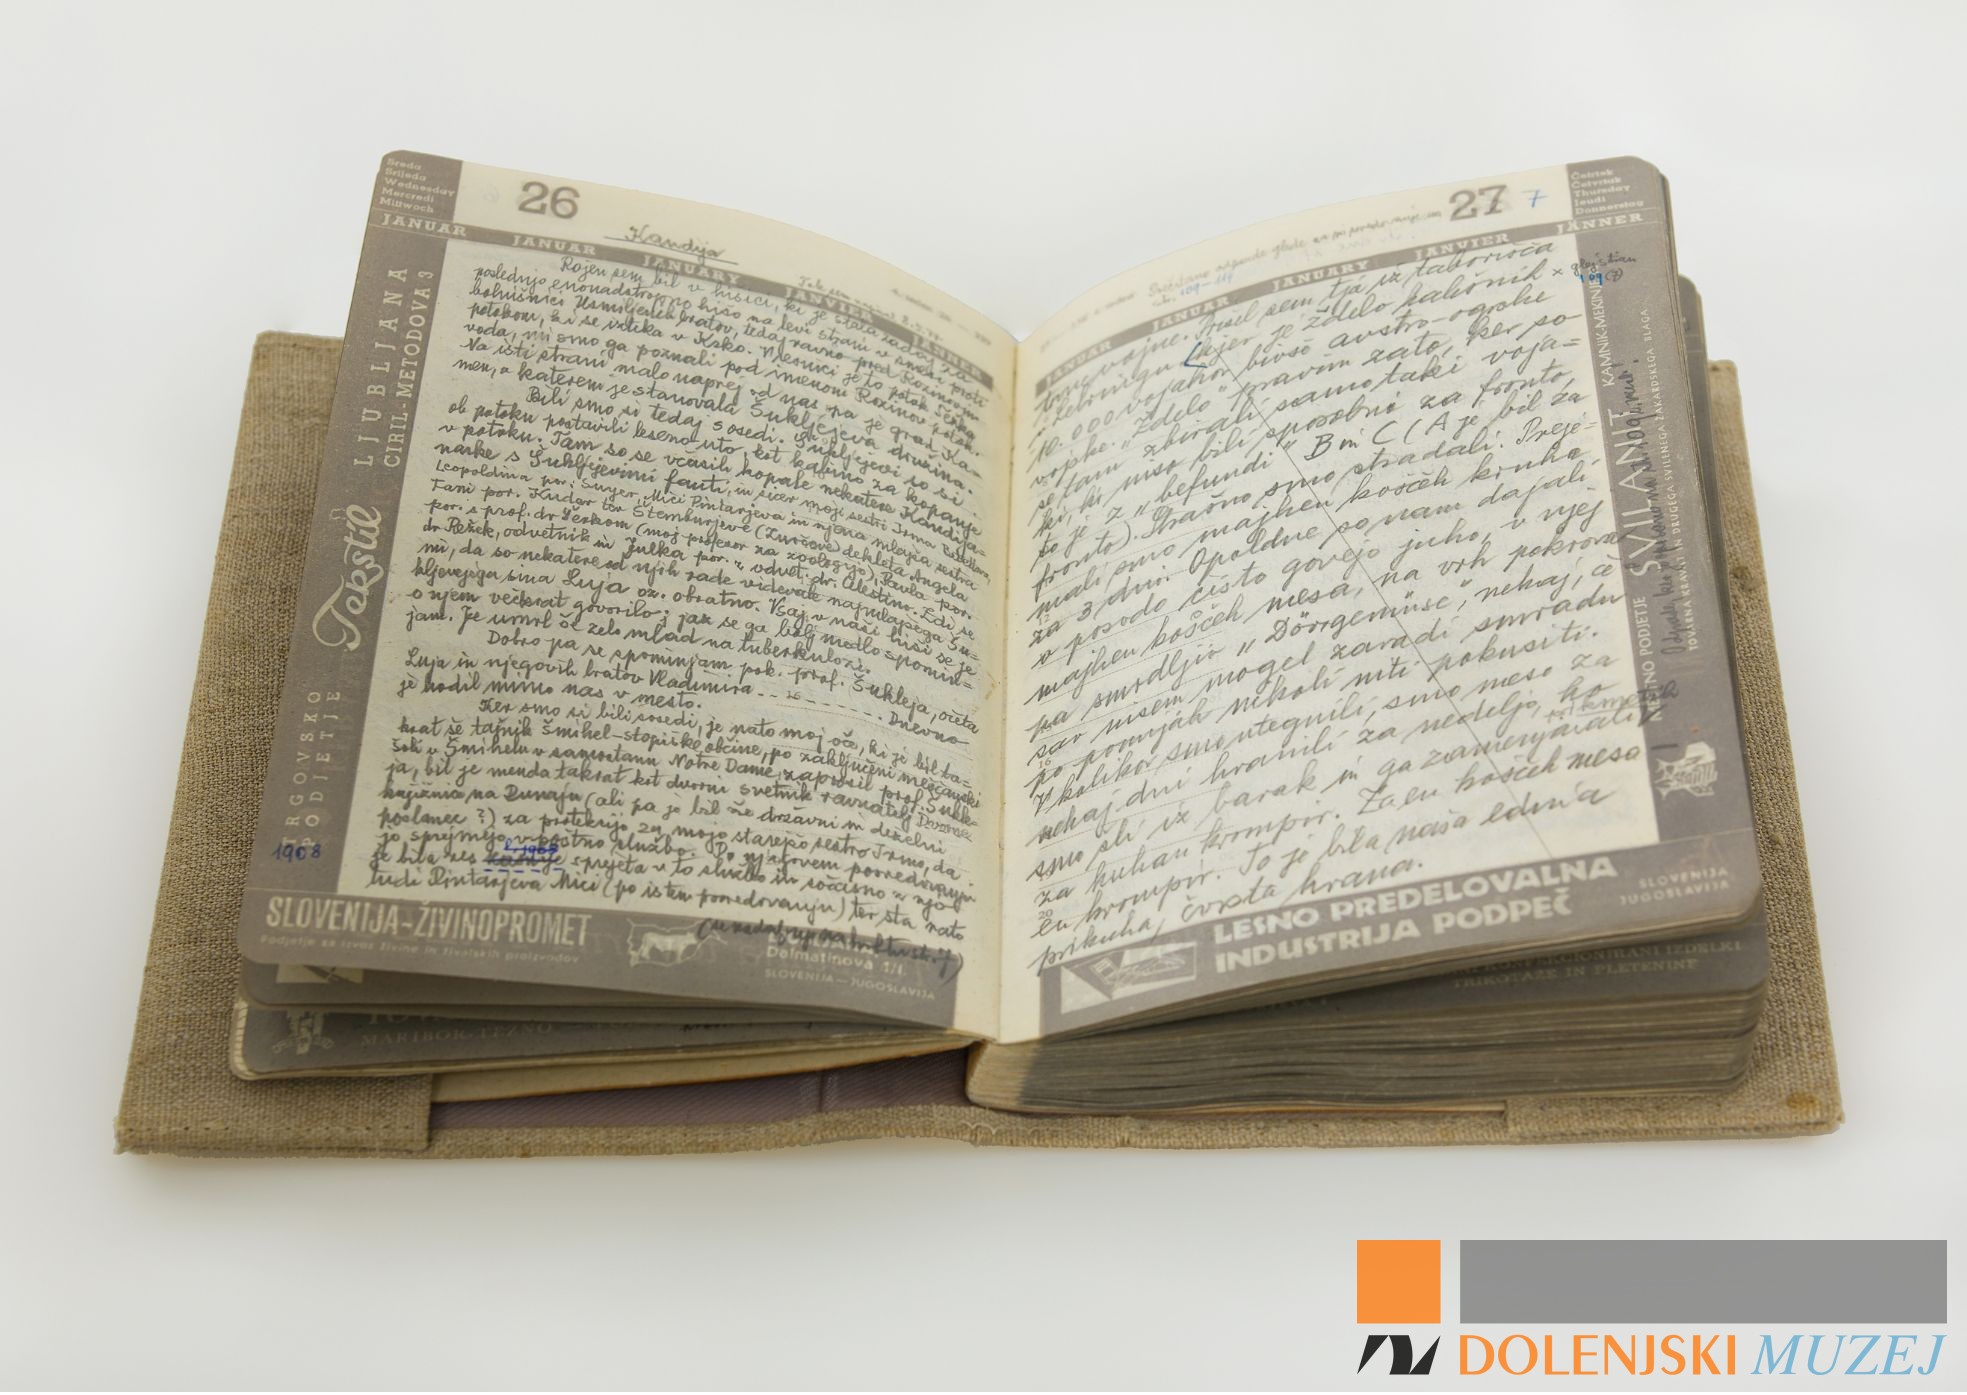 Sreda
Srijeda
Wednesday
Mercredi
Mittwoch
26
JANUAR JANUAR JANUARY JANVIER JÄNNER
Kandija
Rojen sem bil v hišici, ki je stala zadaj za
poslednjo enonadstropno hišo na levi strani v smeri proti
bolnišnici Usmiljenih bratov, tedaj ravno pred Rozinovim
potokom, ki se izteka v Krko. V resnici je to potok Težka
voda, mi smo ga poznali pod imenom Rozinov potok.
Na isti strani malo naprej od nas pa je grad Ka-
men, v katerem je stanovala Šukljejeva družina.
Bili smo si tedaj sosedi. Šukljejevi so si
ob potoku postavili leseno uto, kot kabino za kopanje
v potoku. Tam so se včasih kopale nekatere Kandijan-
narke s Šukljejevimi fanti, in sicer moji sestri Irma
Leopoldina por. Mici Pintarjeva in njena mlajša sestra
Fani por. Kudar ter Štemburjeve (Zurčove) dekleta Angela
por. s prof. dr. (moj profesor za zoologijo), Pavla por.
dr Režek, odvetnik in Julka por. vdvet. dr. Celestino. Zdi se
mi, da so nekatere od njih rade videvale najmlajšega Šu-
kljejevega sina Luja oz. obratno. Vsaj v naši hiši se je
o njem večkrat govorilo; jaz se ga bolj medlo spomin-
jam. Je umrl še zelo mlad na tuberkulozi.
Dobro pa se spominjam pok. prof. Šukljeja, očeta
Luja in njegovih bratov Vladimira - - - - - - - . Dnevno
je hodil mimo nas v mesto.
Ker smo si bili sosedi, je nato moj oče, ki je bil ta-
krat še tajnik Šmihel-stopiške občine, po zaključeni meščanski
šoli v Šmihelu v samostanu Notre Dame, zaprosil prof. Šuklje-
ja, bil je menda takrat kot dvorni svetnik ravnatelj
knjižnice na Dunaju (ali pa je bil že državni in deželni
poslanec ?) za protekcijo za mojo starejšo sestro Irmo, da
jo sprejmejo v poštno službo. Po njegovem posredovanju
je bila res sprejeta v to službo in sočasno z njo
tudi Pintarjeva Mici (po istem posredovanju) ter sta nato
1908
TRGOVSKO
PODJETJE
Tekstil
LJUBLJANA
CIRIL METODOVA 3
SLOVENIJA-ŽIVINOPROMET
Podjetje za izvoz živine in živalskih proizvodov
Dolmatinova 1/I.
SLOVENIJA-JUGOSLAVIJA
MARIBOR-TEZNO
27 7
Četrtek
Četvrtak
Thursday
Jeudi
Donnerstag
JANUAR JANUAR JANUARY JANVIER JÄNNER
str. 109-119
tom vojne. Prišel sem tja iz taborišča
v Lebringu (kjer je ždelo kakšnih × glej stran
10.000 vojakov bivše avstro-ogrske
vojske. „Ždelo" pravim zato, ker so
se tam zbirali samo taki voja=
ki, ki niso bili sposobni za fronto,
to je z „befundi" B in C (A je bil za
fronto). Strašno smo stradali. Preje=
mali smo majhen košček kruha
za 3 dni. Opoldne so nam dajali
v posodo čisto govejo juho, v njej
majhen košček mesa, na vrh pokrova
pa smrdljiv „Dörrgemüse", nekaj, če=
sar nisem mogel zaradi smradu
po pomijah nikoli niti pokusiti.
V kolikor smo utegnili, smo meso za
nekaj dni hranili za nedeljo, ko
smo šli iz barak in ga zamenjavali
za kuhan krompir. Za en košček mesa
en krompir. To je bila naša edina
prikuha, čvrsta hrana.
MESTNO PODJETJE SVILANIT KAMNIK-MEKINJE
TOVARNA KRAVAT IN DRUGEGA SVILENEGA ŽAKARDSKEGA BLAGA
LESNO PREDELOVALNA
INDUSTRIJA PODPEČ
SLOVENIJA
JUGOSLAVIJA
KONFEKCIONIRANI IZDELKI
TRIKOTAŽE IN PLETENINE
DOLENJSKI MUZEJ